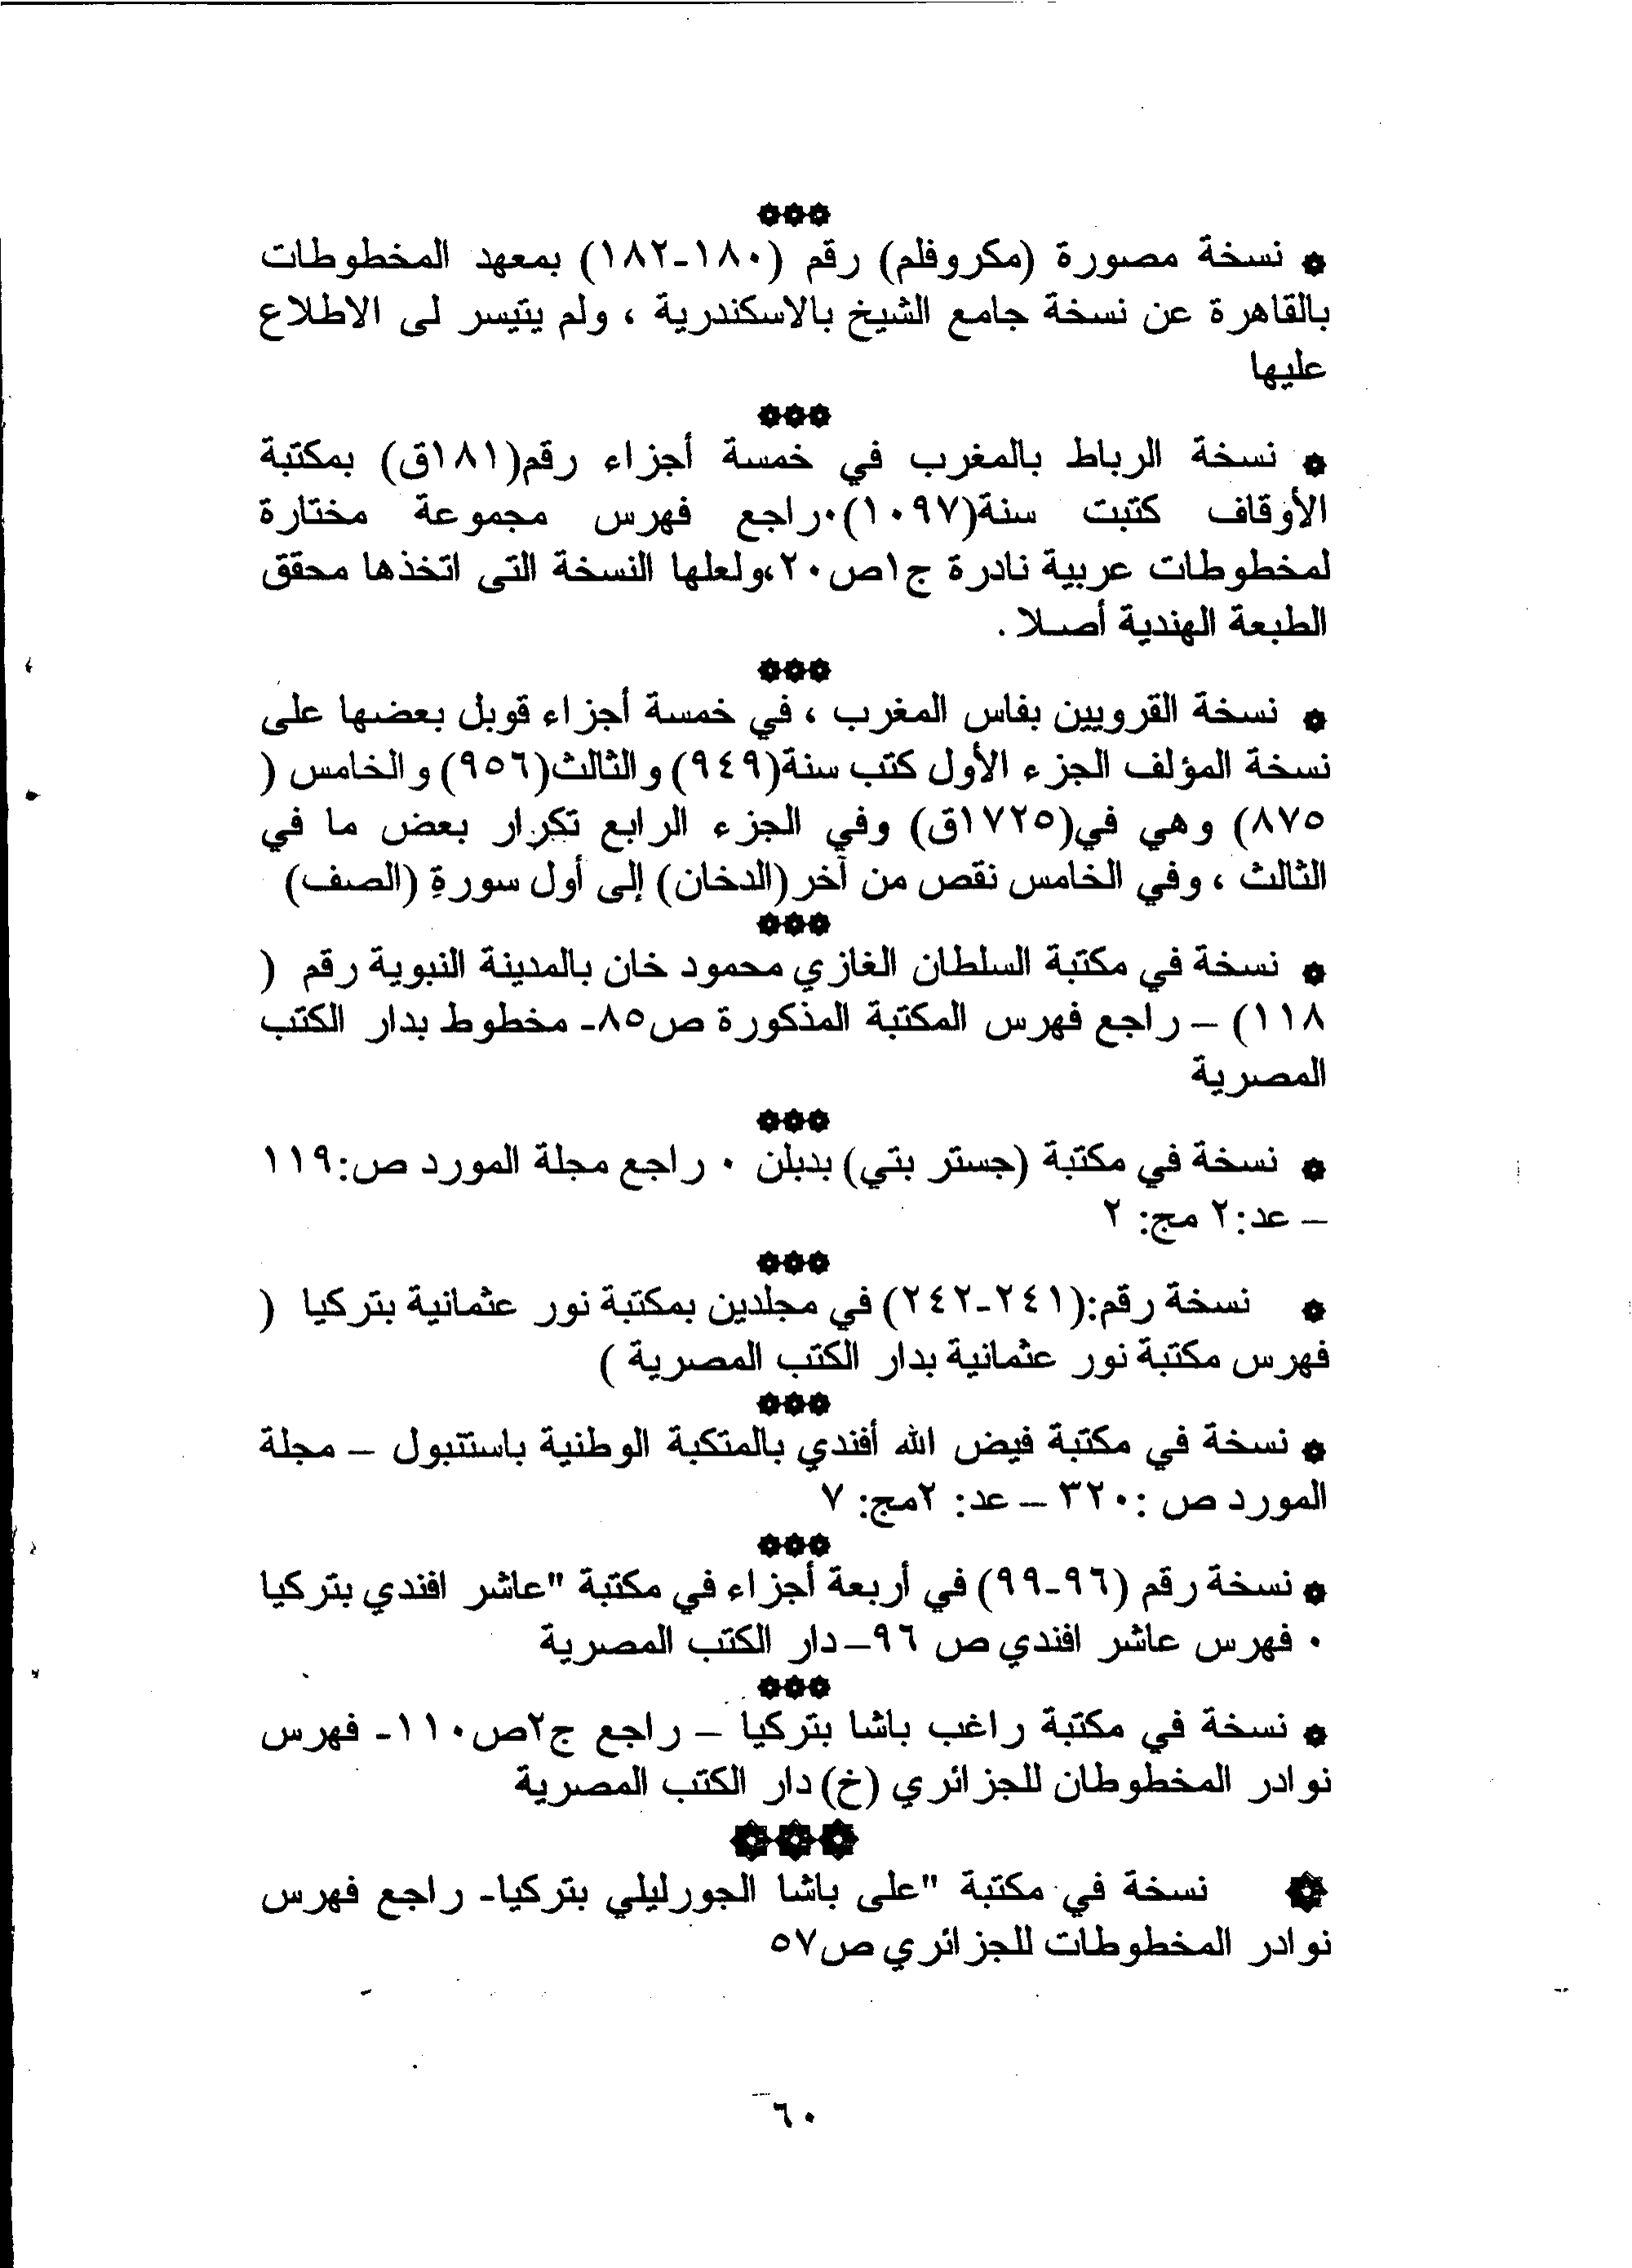 ***
* نسخة مصورة (مكروفلم) رقم (١٨٠-١٨٢) بمعهد المخطوطات
بالقاهرة عن نسخة جامع الشيخ بالاسكندرية ، ولم يتيسر لى الاطلاع
عليها
***
* نسخة الرباط بالمغرب في خمسة أجزاء رقم(١٨١ق) بمكتبة
الأوقاف كتبت سنة(١٠٩٧)٠راجع فهرس مجموعة مختارة
لمخطوطات عربية نادرة ج١ص٢٠،ولعلها النسخة التى اتخذها محقق
الطبعة الهندية أصلا .
***
* نسخة القرويين بفاس المغرب ، في خمسة أجزاء قوبل بعضها على
نسخة المؤلف الجزء الأول كتب سنة(٩٤٩) والثالث(٩٥٦) والخامس (
٨٧٥) وهي في(١٧٢٥ق) وفي الجزء الرابع تكرار بعض ما في
الثالث ، وفي الخامس نقص من آخر(الدخان) إلى أول سورةِ (الصف)
***
* نسخة في مكتبة السلطان الغازي محمود خان بالمدينة النبوية رقم (
١١٨) – راجع فهرس المكتبة المذكورة ص٨٥- مخطوط بدار الكتب
المصرية
***
* نسخة في مكتبة (جستر بتي) بدبلن ٠ راجع مجلة المورد ص:١١٩
– عد:٢ مج: ٢
***
* نسخة رقم:(٢٤١-٢٤٢) في مجلدين بمكتبة نور عثمانية بتركيا (
فهرس مكتبة نور عثمانية بدار الكتب المصرية )
***
* نسخة في مكتبة فيض الله أفندي بالمتكبة الوطنية باستنبول – مجلة
المورد ص :٣٢٠ – عد: ٢مج: ٧
***
* نسخة رقم (٩٦-٩٩) في أربعة أجزاء في مكتبة "عاشر افندي بتركيا
٠ فهرس عاشر افندي ص ٩٦– دار الكتب المصرية
***
* نسخة في مكتبة راغب باشا بتركيا – راجع ج٢ص١١٠- فهرس
نوادر المخطوطان للجزائري (خ) دار الكتب المصرية
***
* نسخة في مكتبة "على باشا الجورليلي بتركيا- راجع فهرس
نوادر المخطوطات للجزائري ص٥٧
٦٠